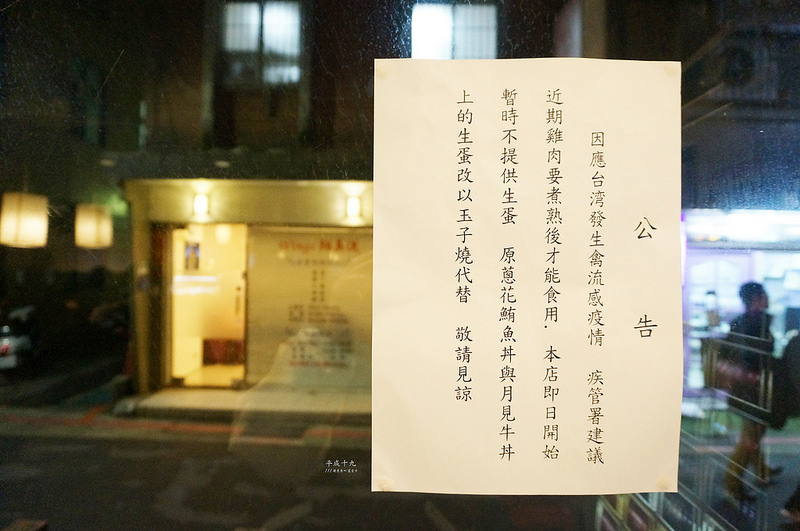 公告
因應台湾發生禽流感疫情 疾管署建議
近期雞肉要煮熟後才能食用. 本店即日開始
暫時不提供生蛋 原蔥花鮪魚丼與月見牛丼
上的生蛋改以玉子燒代替 敬請見諒
平成十九